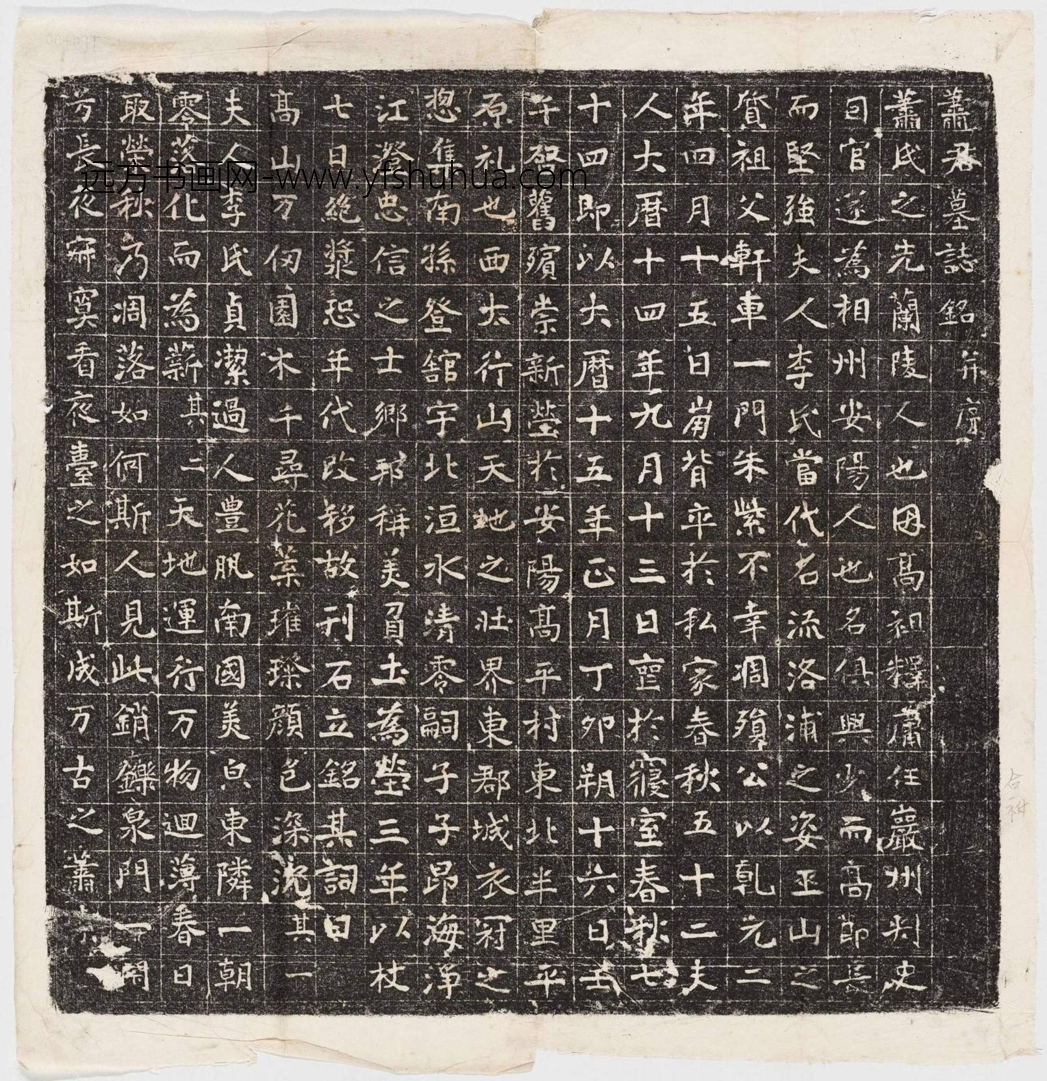 蕭君墓誌銘并序
蕭氏之先蘭陵人也因高祖釋膚任巖州判史
因官遂為相州安陽人也名俱興少而高節長
而堅強夫人李氏當代名流洛浦之姿玉山之
質祖父軒車一門朱紫不幸凋殞公以乹元二
年四月十五日崗背卒於私家春秋五十二夫
人大曆十四年九月十三日薨於寢室春秋七
十四即以大曆十五年正月丁卯朔十六日壬
午啓舊殯崇新塋於安陽高平村東北半里平
原礼也西太行山天地之壯界東郡城衣冠之
惣集南孫登舘宇北洹水清零嗣子子昂海淨
江澄忠信之士鄉邦稱美負土為塋三年以杖
七日絕漿恐年代改移故刊石立銘其詞曰
高山万仞園木千尋花葉璀璨顏色深沈其一
夫人李氏貞潔過人豊肌南國美皃東隣一朝
零落化而為薪其二天地運行万物迴薄春日
取榮秋乃凋落如何斯人見此銷鑠泉門一閉
兮長夜寂寞看夜臺之如斯成万古之蕭
远方书画网-www.yfshuhua.com
合祔